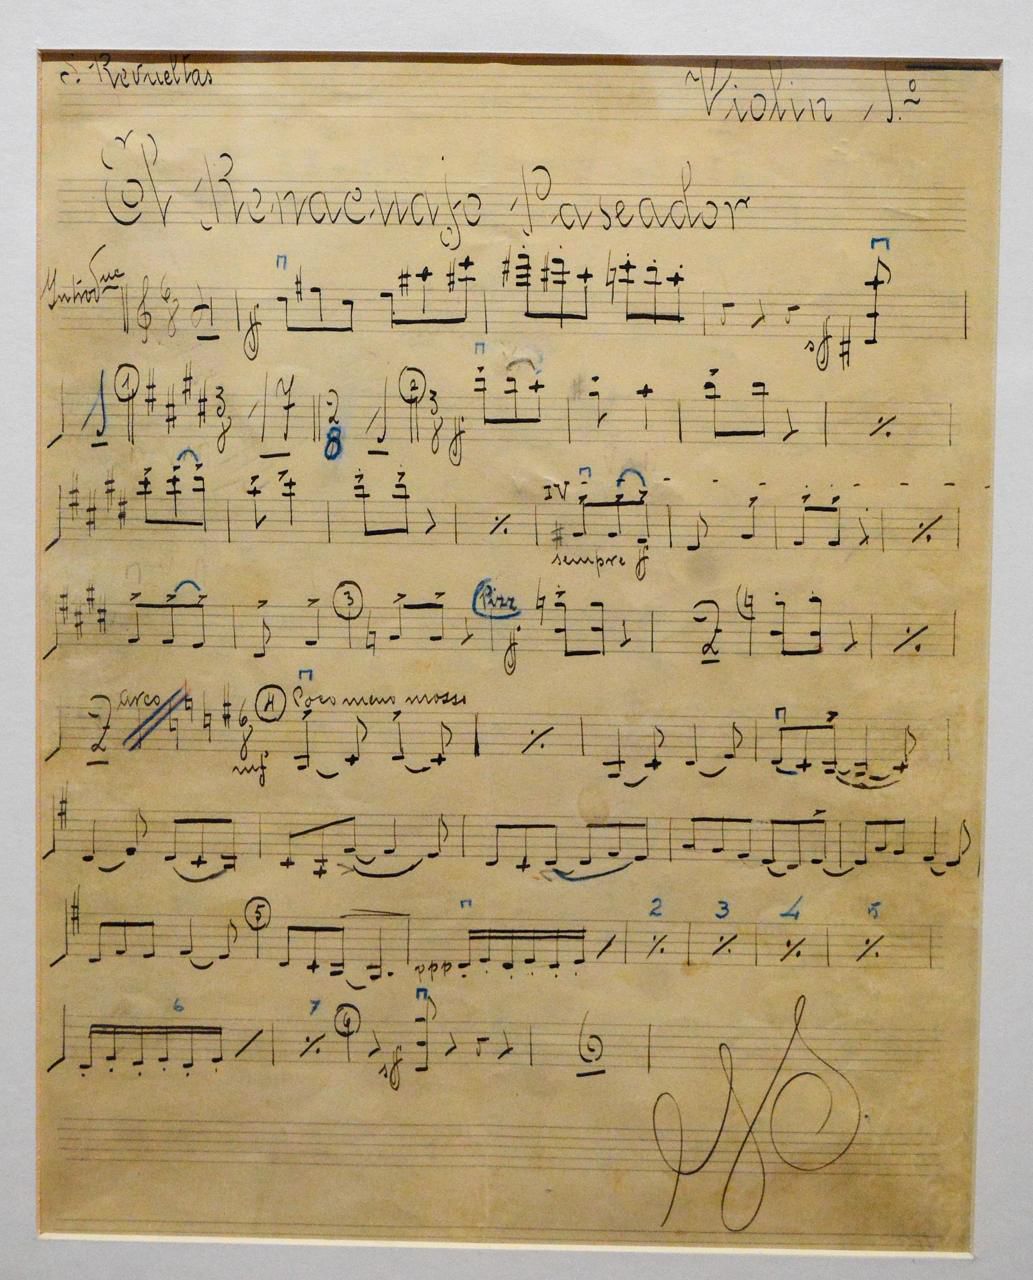 S. Revueltas
Violin 1.º
El Renacuajo Paseador
Introdue
6 8
f
sff
1 3 8 7 2 8 1 2 3 8 f
IV
sempre f
3 Pizz f 2
2 arco 6 8 4 Poco meno mosso
mf
5 2 3 4 5
ppp
6 7 6 6
sf